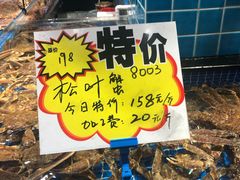 原价
198
特价
8003
松叶蟹
今日特价：158元/斤
加工费：20元/斤